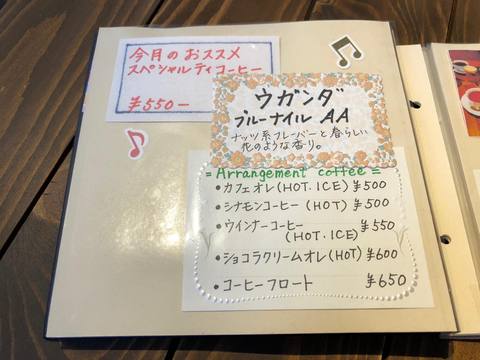 今月のおススメ
スペシャルティコーヒー
¥550-
ウガンダ
ブルーナイル AA
ナッツ系フレーバーと春らしい
花のような香り。
= Arrangement coffee =
・カフェオレ(HOT.ICE) ¥500
・シナモンコーヒー (HOT) ¥500
・ウインナーコーヒー ¥550
(HOT.ICE)
・ショコラクリームオレ(HOT) ¥600
・コーヒーフロート ¥650